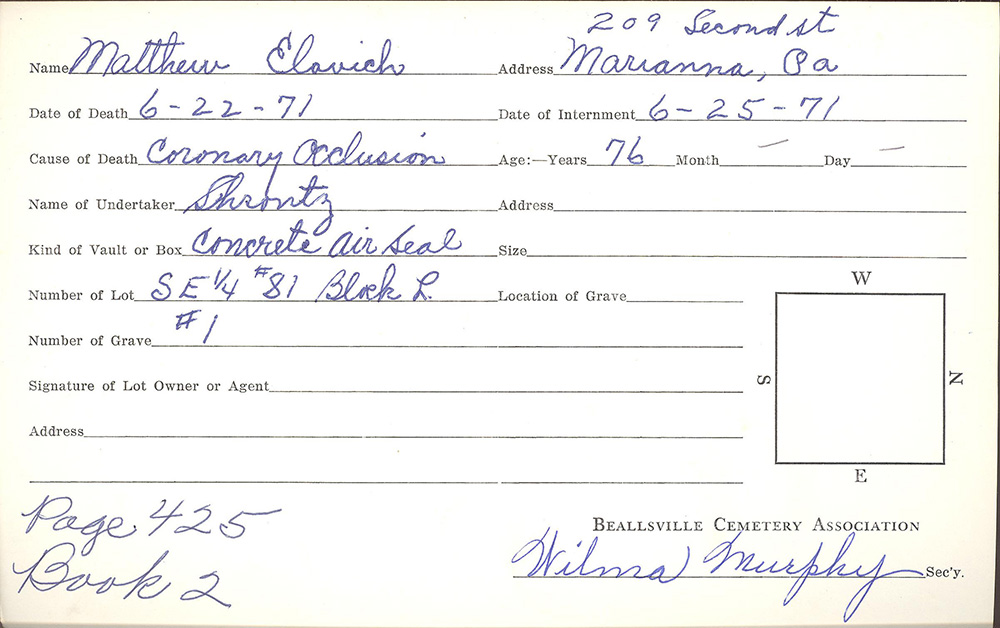 209 Second st
Name Matthew Elavich Address Marianna, Pa
Date of Death 6-22-71 Date of Internment 6-25-71
Cause of Death Coronary Occlusion Age:—Years 76 Month — Day —
Name of Undertaker Shrontz Address
Kind of Vault or Box Concrete Air Seal Size
Number of Lot SE 1/4 #81 Block L. Location of Grave
W
Number of Grave #1
S N
Signature of Lot Owner or Agent
Address
E
Page 425
Beallsville Cemetery Association
Book 2
Wilma Murphy Sec'y.